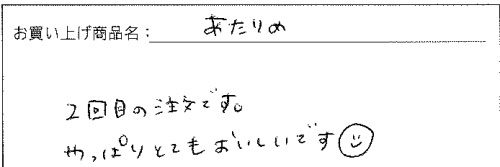 お買い上げ商品名：あたりめ
2回目の注文です。
やっぱりとてもおいしいです